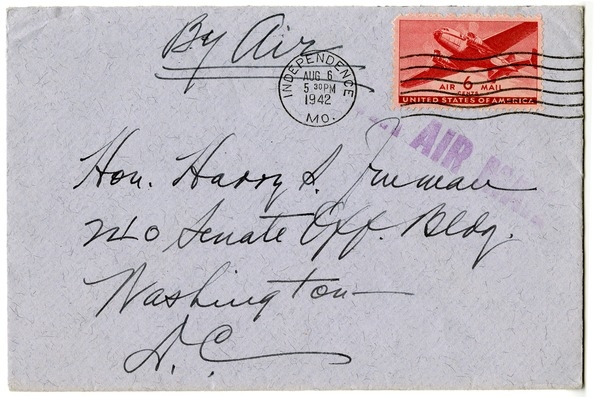 By Air
INDEPENDENCE
AUG 6
5 30 PM
1942
MO.
6
CENTS
AIR MAIL
UNITED STATES OF AMERICA
AIR
Hon. Harry S. Truman
240 Senate Off. Bldg.
Washington
D.C.